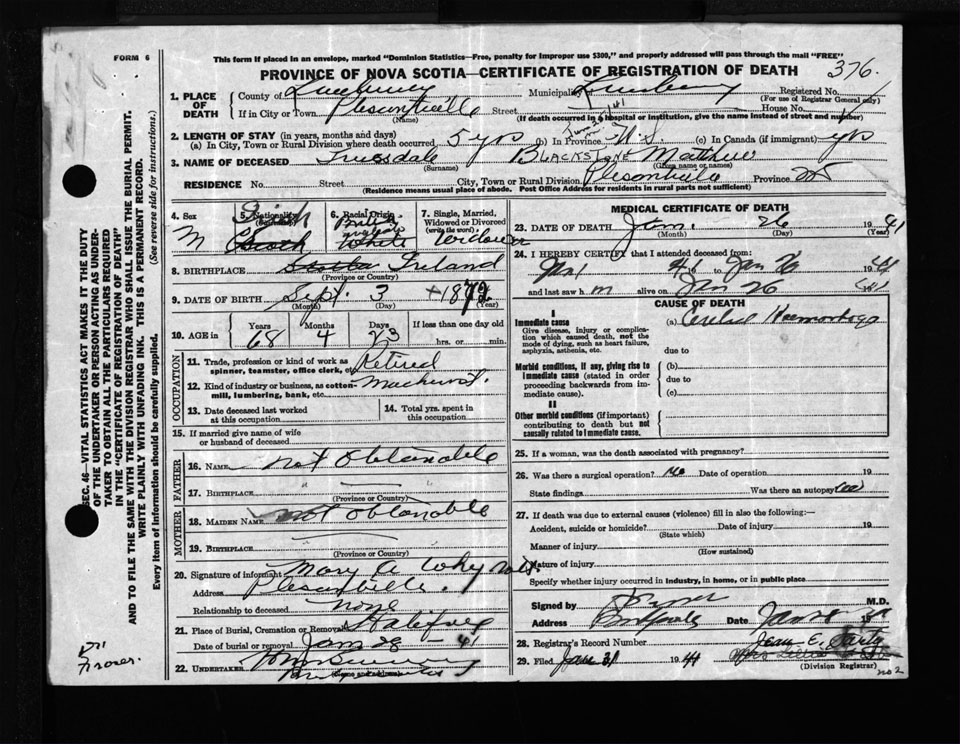 FORM 6
This form if placed in an envelope, marked "Dominion Statistics—Free, penalty for improper use $300," and properly addressed will pass through the mail "FREE"
PROVINCE OF NOVA SCOTIA—CERTIFICATE OF REGISTRATION OF DEATH
376.
1. PLACE OF DEATH
County of Lunenburg Municipality Lunenburg Registered No.
(For use of Registrar General only)
If in City or Town Street House No.
(Name) (If death occurred in a hospital or institution, give the name instead of street and number)
2. LENGTH OF STAY (in years, months and days)
(a) In City, Town or Rural Division where death occurred 5 yrs (b) In Province N.S. (c) In Canada (if immigrant) yrs
3. NAME OF DECEASED Truesdale Blackstone Matthew
(Surname) (Given name or names)
RESIDENCE No. Street City, Town or Rural Division Province NS
(Residence means usual place of abode. Post Office Address for residents in rural parts not sufficient)
4. Sex M
5. Nationality Irish
6. Racial Origin White
7. Single, Married, Widowed or Divorced (write the word) Widower
8. BIRTHPLACE Ireland
(Province or Country)
9. DATE OF BIRTH Sept. 3 1872
(Month) (Day) (Year)
10. AGE in Years 68 Months 4 Days 23 If less than one day old hrs. or min.
OCCUPATION
11. Trade, profession or kind of work as spinner, teamster, office clerk, etc. Retired
12. Kind of industry or business, as cotton-mill, lumbering, bank, etc. Machinist.
13. Date deceased last worked at this occupation
14. Total yrs. spent in this occupation
15. If married give name of wife or husband of deceased
FATHER
16. NAME not obtanable
17. BIRTHPLACE
(Province or Country)
MOTHER
18. MAIDEN NAME not obtanable
19. BIRTHPLACE
(Province or Country)
20. Signature of informant Mary A Whynot.
Address
Relationship to deceased none
21. Place of Burial, Cremation or Removal Halifax
Date of burial or removal Jan 28 - 41
22. UNDERTAKER
(Name and address)
MEDICAL CERTIFICATE OF DEATH
23. DATE OF DEATH Jan. 26 1941
(Month) (Day) (Year)
24. I HEREBY CERTIFY that I attended deceased from:
Jan 1 41 to Jan 26 1941
and last saw h m alive on Jan 26 1941
CAUSE OF DEATH
I
Immediate cause
Give disease, injury or complication which caused death, not the mode of dying, such as heart failure, asphyxia, asthenia, etc.
(a) Cerebral Haemorrhage
due to
Morbid conditions, if any, giving rise to immediate cause (stated in order proceeding backwards from immediate cause).
(b)
due to
(c)
II
Other morbid conditions (if important) contributing to death but not causally related to immediate cause.
25. If a woman, was the death associated with pregnancy?
26. Was there a surgical operation? No Date of operation 19
State findings Was there an autopsy? no
27. If death was due to external causes (violence) fill in also the following:—
Accident, suicide or homicide? Date of injury 19
(State which)
Manner of injury
(How sustained)
Nature of injury
Specify whether injury occurred in industry, in home, or in public place
Signed by M.D.
Address Bridgewater Date Jan 19
28. Registrar's Record Number Jean E.
29. Filed Jan 31 1941
(Division Registrar)
no 2
SEC. 46—VITAL STATISTICS ACT MAKES IT THE DUTY OF THE UNDERTAKER OR PERSON ACTING AS UNDERTAKER TO OBTAIN ALL THE PARTICULARS REQUIRED IN THE "CERTIFICATE OF REGISTRATION OF DEATH" AND TO FILE THE SAME WITH THE DIVISION REGISTRAR WHO SHALL ISSUE THE BURIAL PERMIT.
WRITE PLAINLY WITH UNFADING INK. THIS IS A PERMANENT RECORD.
Every item of information should be carefully supplied. (See reverse side for instructions.)